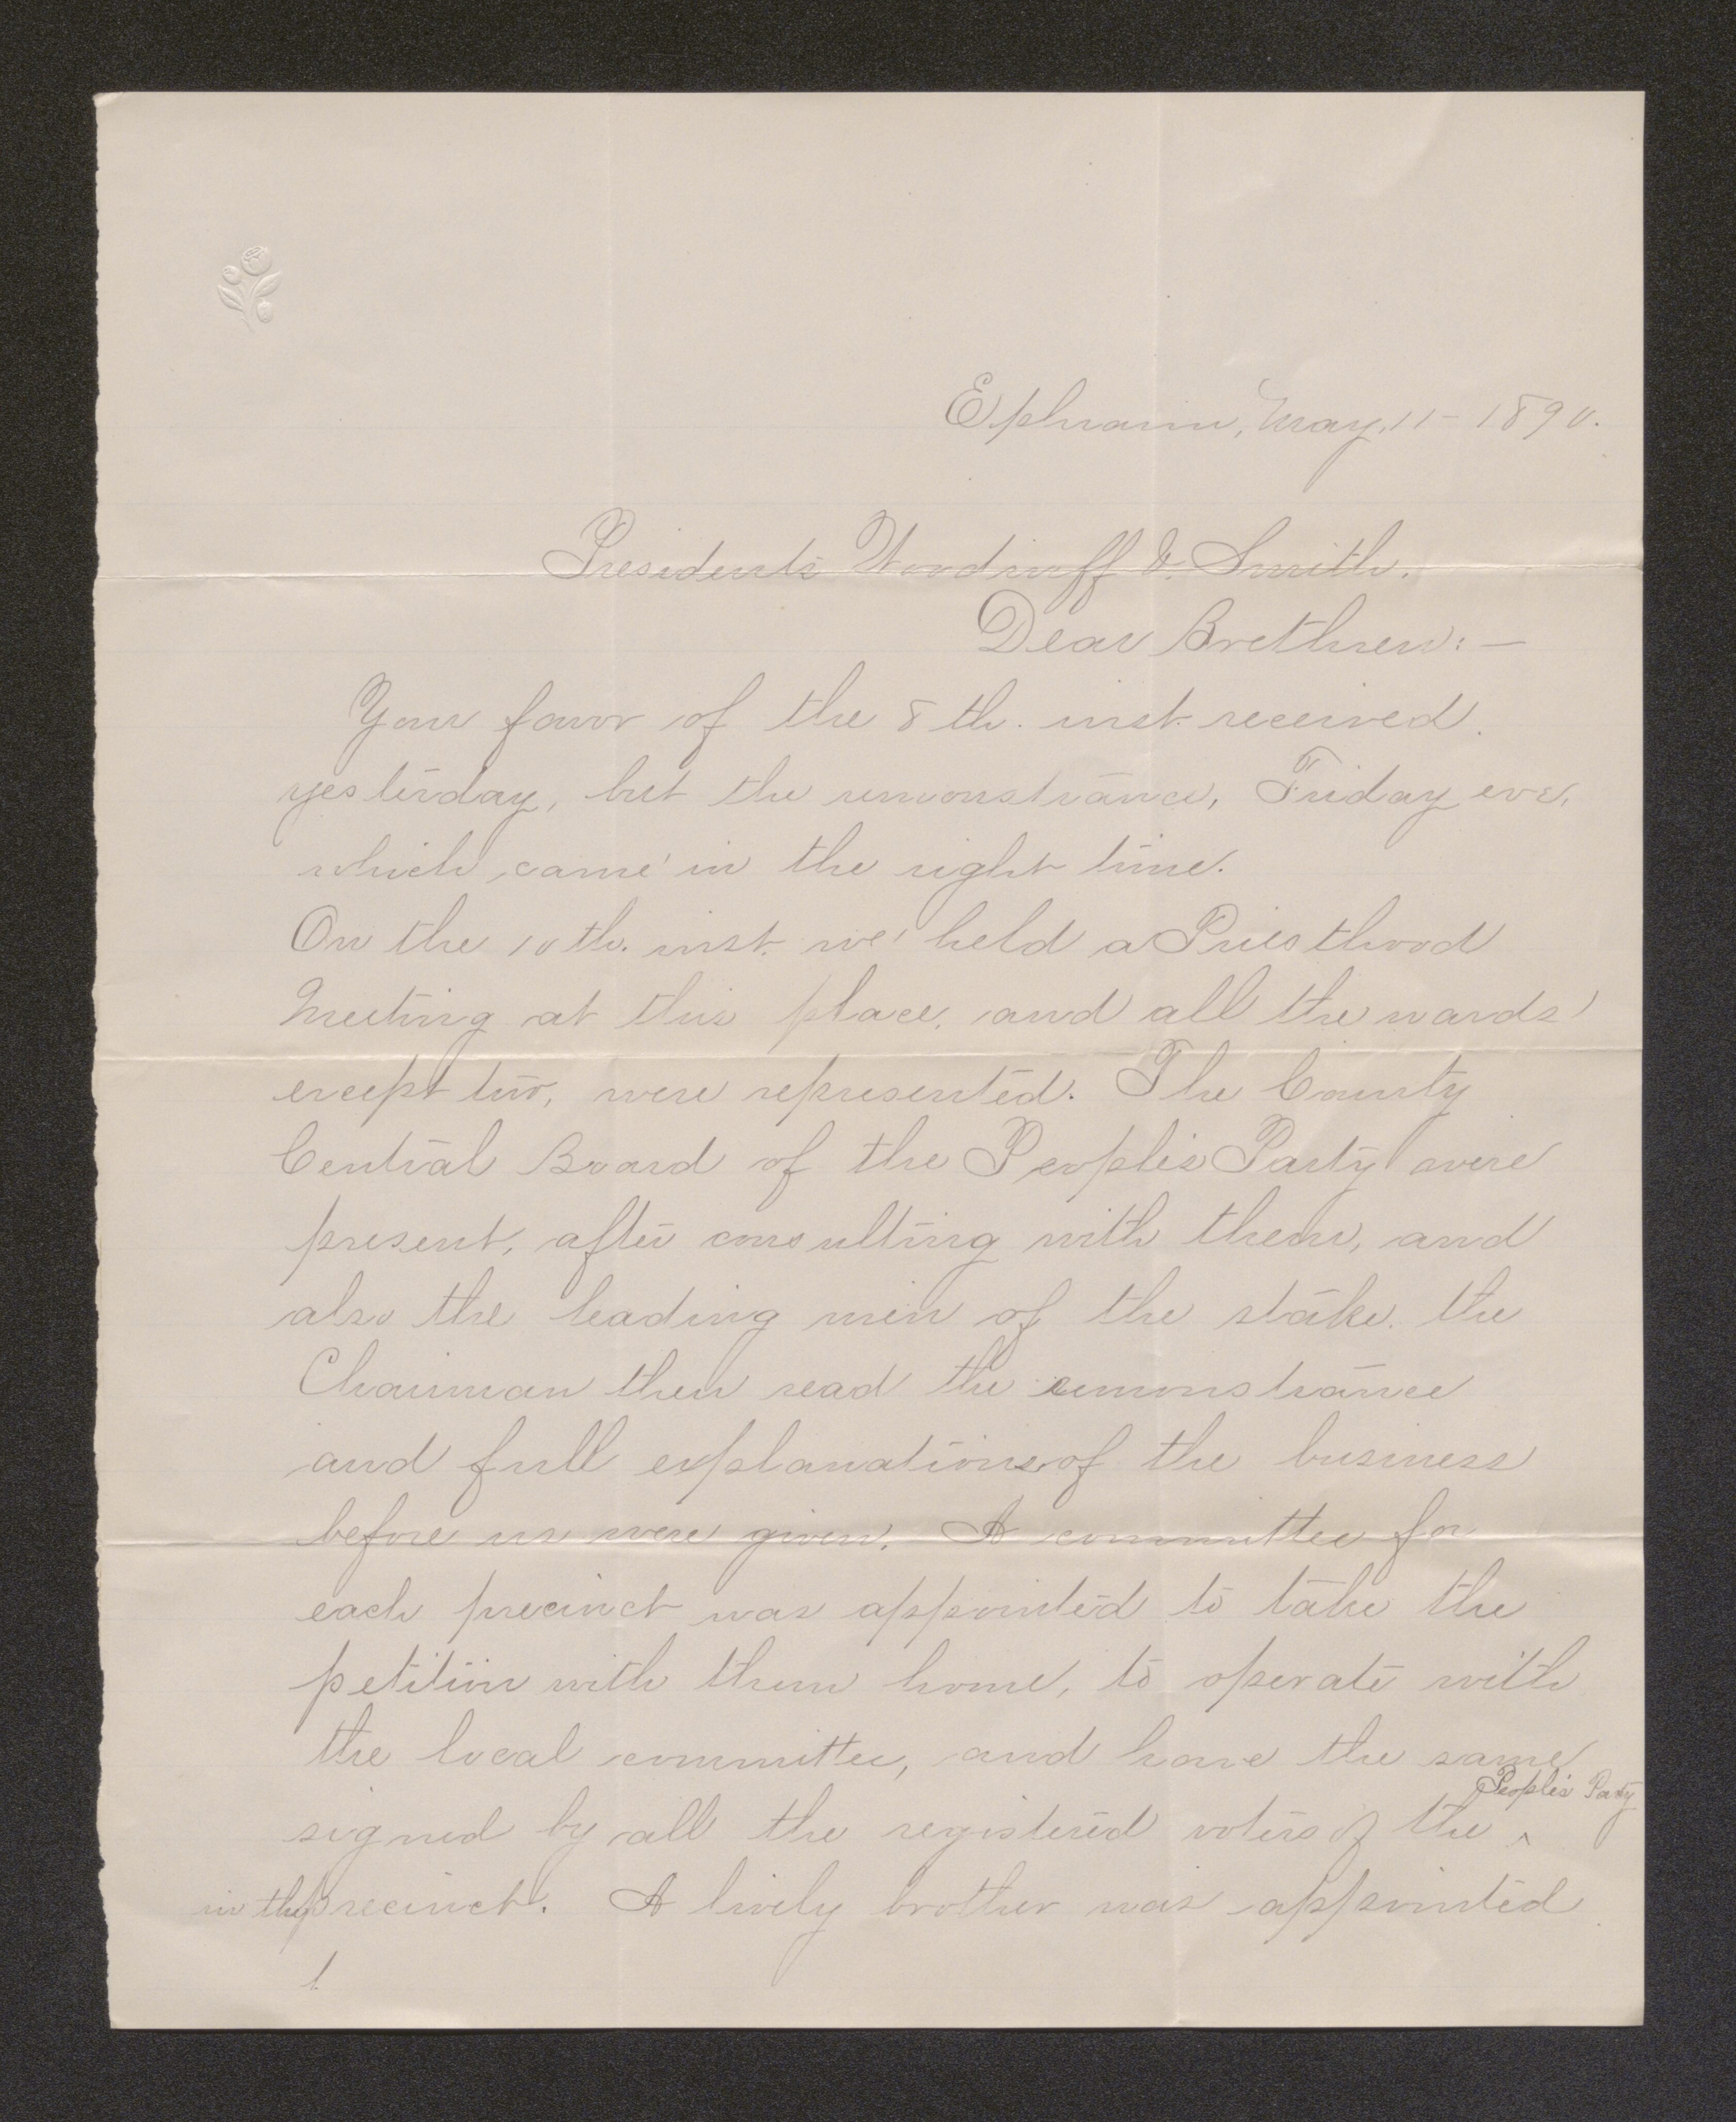 Ephraim, May, 11 - 1890.
Presidents Woodruff & Smith.
Dear Brethren: —
Your favor of the 8th. inst. received
yesterday, but the remonstrance, Friday eve,
which came in the right time.
On the 10th. inst. we held a Priesthood
Meeting at this place, and all the wards
except two, were represented. The County
Central Board of the People's Party were
present, after consulting with them, and
also the leading men of the stake. the
Chairman then read the remonstrance
and full explanations of the business
before us were given. A committee for
each precinct was appointed to take the
petition with them home, to operate with
the local committee, and have the same
People's Party
signed by all the registered voters of the ^
in the precinct. A lively brother was appointed
1.